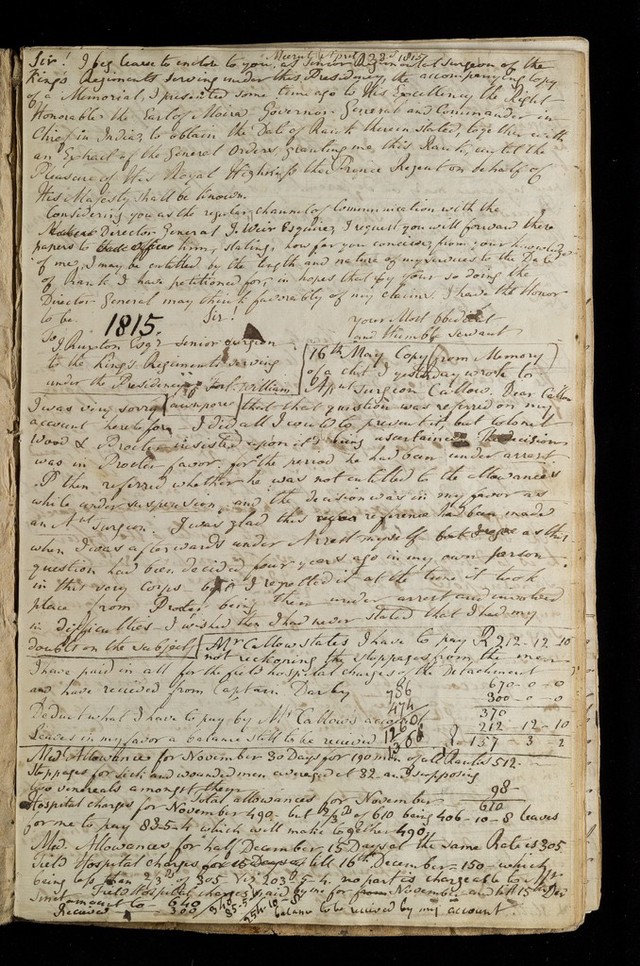 Meerut April 23d 1815
Sir! I beg leave to enclose to you, as Senior Regimental surgeon of the
King's Regiments serving under this Presidency, the accompanying copy
of a Memorial, I presented some time ago to His Excellency the Right
Honorable the Earl of Moira, Governor General and Commander in
Chief in India, to obtain the Date of Rank therein stated, together with
an Extract of the General Orders granting me, this Rank, until the
Pleasure of His Royal Highness the Prince Regent on behalf of
His Majesty shall be known.
Considering you as the regular channel of Communication with the
Director General J. Weir Esquire, I request you will forward these
papers to him, stating, how far you conceive from your knowledge
of me, I may be entitled by the length and nature of my services to the Date
of Rank I have petitioned for, in hopes that by your so doing the
Director General may think favorably of my claims. I have the Honor
to be Sir! your Most Obedient
1815. and Humble Servant
To
J. Esqr Senior Surgeon
to the King's Regiments serving
under the Presidency of Fort William
16th May Copy from Memory
of a chit I yesterday wrote to
Asst surgeon Callow. Dear Callow
I was very sorry Cawnpore that that question was referred on my
account heretofore I did all I could to prevent it, but Colonel
Wood & Procter insisted upon its being ascertained. The decision
was in Procter favor for the period he had been under arrest
I then referred whether he was not entitled to the allowances
while under suspension, and the decision was in my favor as
an Ast surgeon. I was glad this reference had been made
when I was afterwards under Arrest myself as this
question had been decided four years ago in my own person
in this very Corps - but I regretted it at the time it took
place from Procter being then under arrest and involved
in difficulties I wished then I had never stated that I had my
doubts on the subject. Mr Callow states I have to pay R 212-12-10
not reckoning the stoppages from the men
I have paid in all for the field hospital charges of the Detachment 670-0-0
and have received from Captain Darby 300-0-0
786 370
474
Deduct what I have to pay by Mr Callow's account 212-12-10
1260
Leaves in my favor a balance still to be received R 157-3-2
Med. Allowances for November 30 Days for 190 men of all Ranks 512-
Stoppages for sick and wounded men averaged at 82 and supposing
two vendreals amongst them 98-
Total allowances for November 610
Hospital charges for November 490. but 2/3ds of 610 being 406-10-8 leaves
for me to pay 83-5-4 which will make together 490,
Med. Allowances for half December 15 Days at the same Rate is 305
Field Hospital charges for 15 Days till 16th December - 150 - which
being less than 2/3ds of 305 Viz 203-5-4. no part is chargeable to
Field Hospital charges paid by me for from November and till 15th Der
amount to - 640
Received 300
340
85-5
254-10
balance to be received by my account.